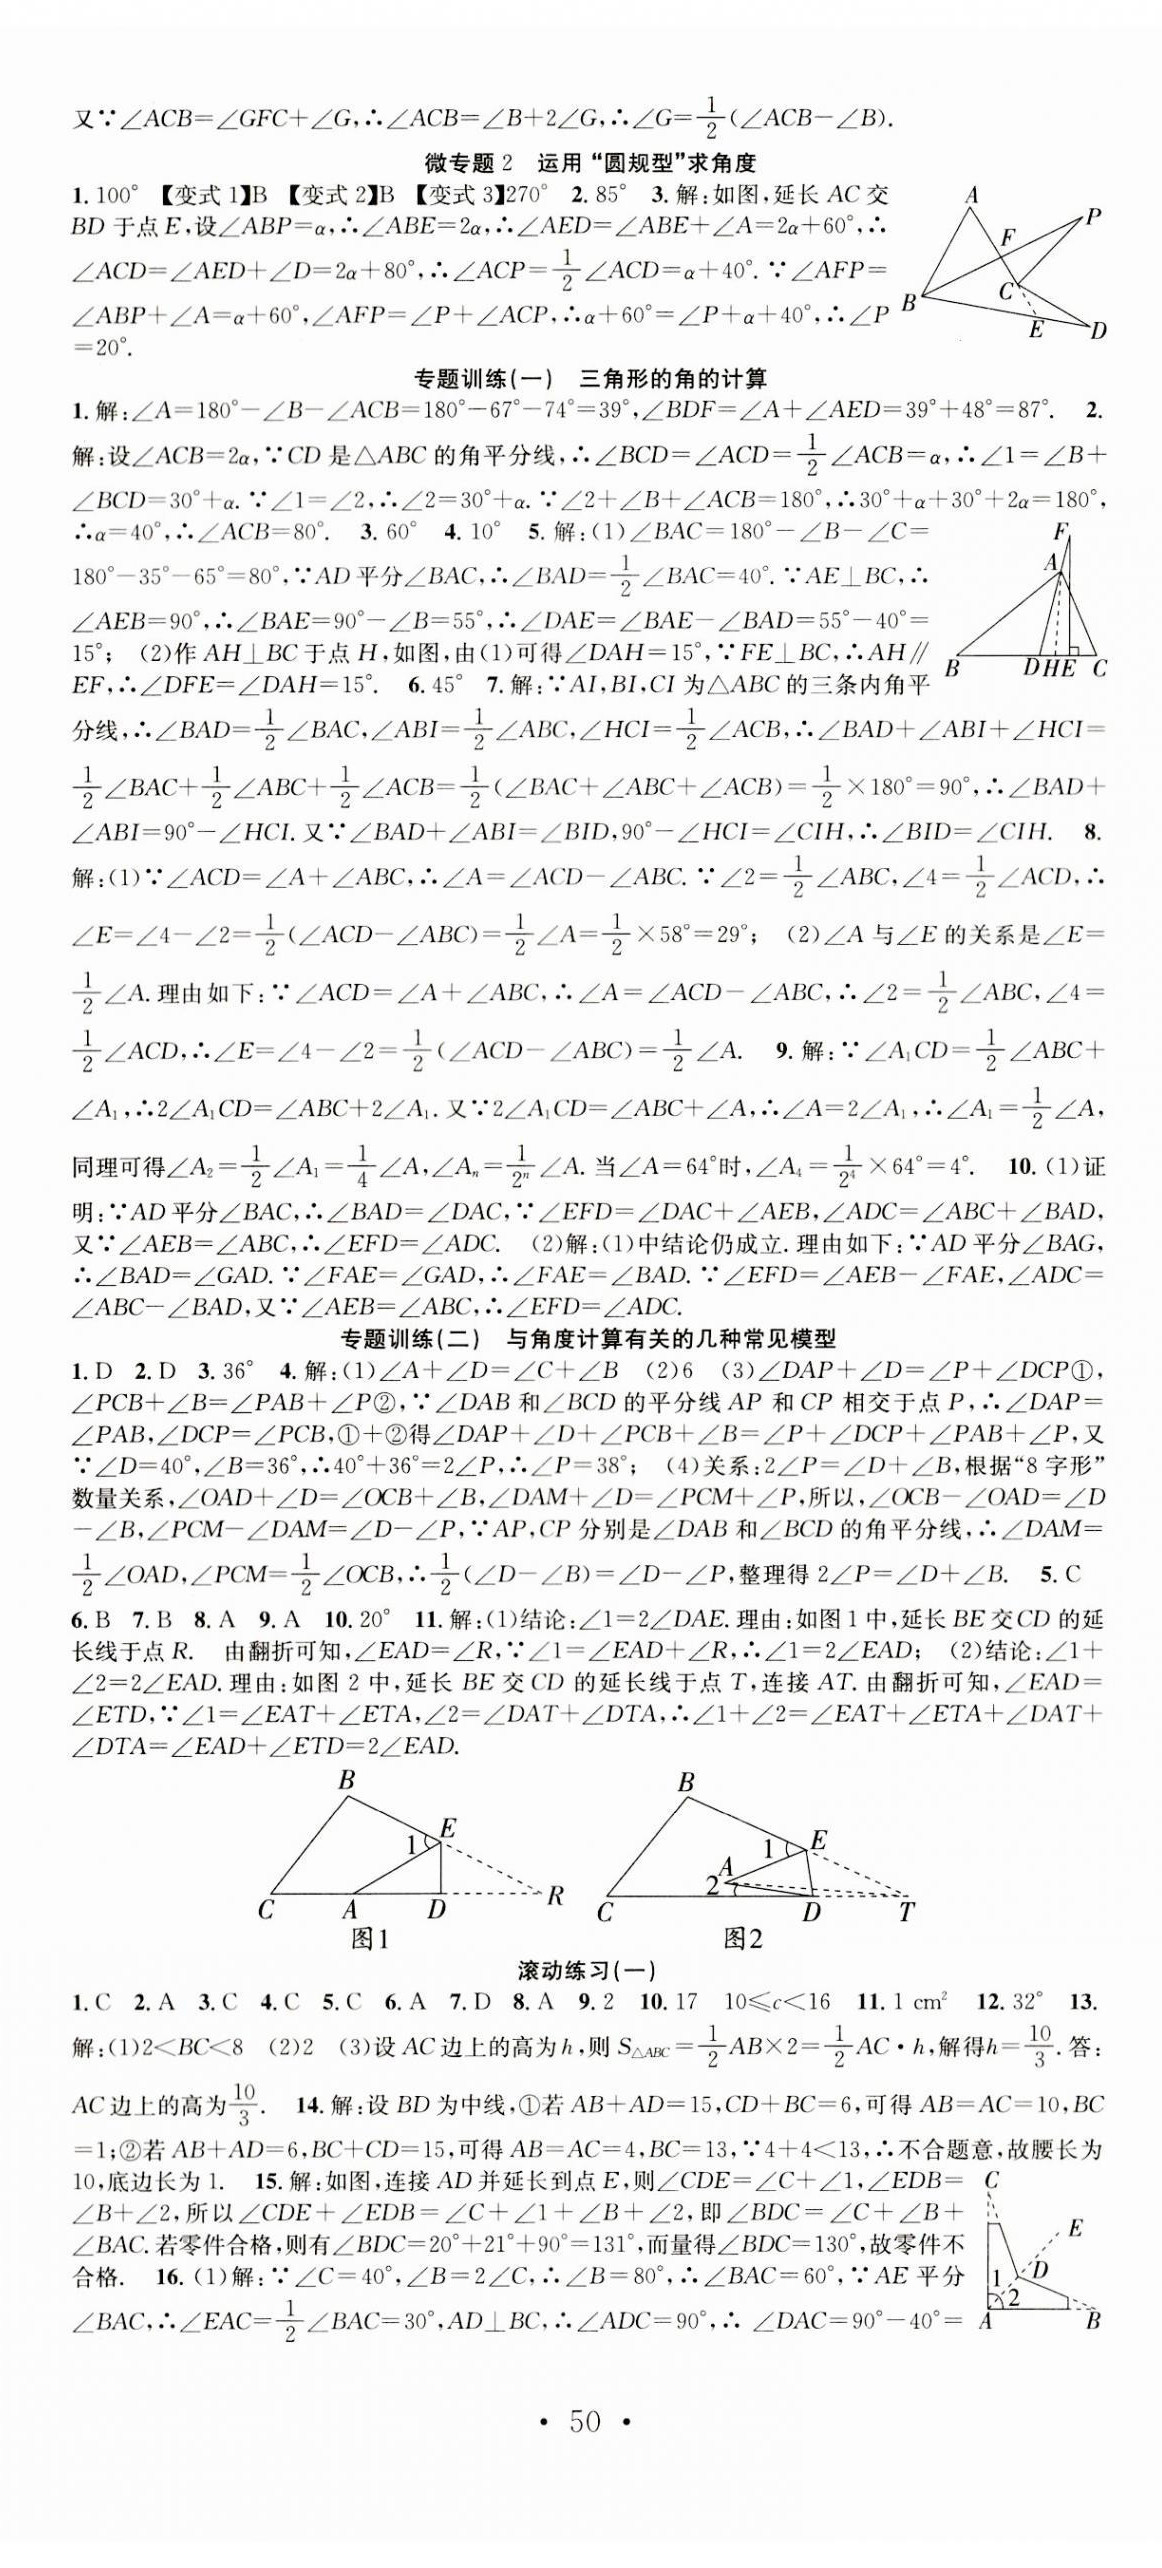 又∵∠ACB=∠GFC+∠G,∴∠ACB=∠B+2∠G,∴∠G=1/2(∠ACB-∠B).
微专题2 运用“圆规型”求角度
1. 100° 【变式1】B 【变式2】B 【变式3】270° 2. 85° 3. 解:如图,延长AC交
BD于点E,设∠ABP=α,∴∠ABE=2α,∴∠AED=∠ABE+∠A=2α+60°,∴
∠ACD=∠AED+∠D=2α+80°,∴∠ACP=1/2∠ACD=α+40°.∵∠AFP=
∠ABP+∠A=α+60°,∠AFP=∠P+∠ACP,∴α+60°=∠P+α+40°,∴∠P
=20°.
A
P
F
B
C
E
D
专题训练(一) 三角形的角的计算
1. 解:∠A=180°-∠B-∠ACB=180°-67°-74°=39°,∠BDF=∠A+∠AED=39°+48°=87°. 2.
解:设∠ACB=2α,∵CD是△ABC的角平分线,∴∠BCD=∠ACD=1/2∠ACB=α,∴∠1=∠B+
∠BCD=30°+α.∵∠1=∠2,∴∠2=30°+α.∵∠2+∠B+∠ACB=180°,∴30°+α+30°+2α=180°,
∴α=40°,∴∠ACB=80°. 3. 60° 4. 10° 5. 解:(1)∠BAC=180°-∠B-∠C=
180°-35°-65°=80°,∵AD平分∠BAC,∴∠BAD=1/2∠BAC=40°.∵AE⊥BC,∴
∠AEB=90°,∴∠BAE=90°-∠B=55°,∴∠DAE=∠BAE-∠BAD=55°-40°=
15°; (2)作AH⊥BC于点H,如图,由(1)可得∠DAH=15°,∵FE⊥BC,∴AH∥
EF,∴∠DFE=∠DAH=15°. 6. 45° 7. 解:∵AI,BI,CI为△ABC的三条内角平
F
A
B
DHE
C
分线,∴∠BAD=1/2∠BAC,∠ABI=1/2∠ABC,∠HCI=1/2∠ACB,∴∠BAD+∠ABI+∠HCI=
1/2∠BAC+1/2∠ABC+1/2∠ACB=1/2(∠BAC+∠ABC+∠ACB)=1/2×180°=90°,∴∠BAD+
∠ABI=90°-∠HCI.又∵∠BAD+∠ABI=∠BID,90°-∠HCI=∠CIH,∴∠BID=∠CIH. 8.
解:(1)∵∠ACD=∠A+∠ABC,∴∠A=∠ACD-∠ABC.∵∠2=1/2∠ABC,∠4=1/2∠ACD,∴
∠E=∠4-∠2=1/2(∠ACD-∠ABC)=1/2∠A=1/2×58°=29°; (2)∠A与∠E的关系是∠E=
1/2∠A.理由如下:∵∠ACD=∠A+∠ABC,∴∠A=∠ACD-∠ABC,∴∠2=1/2∠ABC,∠4=
1/2∠ACD,∴∠E=∠4-∠2=1/2(∠ACD-∠ABC)=1/2∠A. 9. 解:∵∠A₁CD=1/2∠ABC+
∠A₁,∴2∠A₁CD=∠ABC+2∠A₁.又∵2∠A₁CD=∠ABC+∠A,∴∠A=2∠A₁,∴∠A₁=1/2∠A,
同理可得∠A₂=1/2∠A₁=1/4∠A,∠Aₙ=1/2ⁿ∠A.当∠A=64°时,∠A₄=1/2⁴×64°=4°. 10. (1)证
明:∵AD平分∠BAC,∴∠BAD=∠DAC,∵∠EFD=∠DAC+∠AEB,∠ADC=∠ABC+∠BAD,
又∵∠AEB=∠ABC,∴∠EFD=∠ADC. (2)解:(1)中结论仍成立.理由如下:∵AD平分∠BAG,
∴∠BAD=∠GAD.∵∠FAE=∠GAD,∴∠FAE=∠BAD.∵∠EFD=∠AEB-∠FAE,∠ADC=
∠ABC-∠BAD,又∵∠AEB=∠ABC,∴∠EFD=∠ADC.
专题训练(二) 与角度计算有关的几种常见模型
1. D 2. D 3. 36° 4. 解:(1)∠A+∠D=∠C+∠B (2)6 (3)∠DAP+∠D=∠P+∠DCP①,
∠PCB+∠B=∠PAB+∠P②,∵∠DAB和∠BCD的平分线AP和CP相交于点P,∴∠DAP=
∠PAB,∠DCP=∠PCB,①+②得∠DAP+∠D+∠PCB+∠B=∠P+∠DCP+∠PAB+∠P,又
∵∠D=40°,∠B=36°,∴40°+36°=2∠P,∴∠P=38°; (4)关系:2∠P=∠D+∠B,根据“8字形”
数量关系,∠OAD+∠D=∠OCB+∠B,∠DAM+∠D=∠PCM+∠P,所以,∠OCB-∠OAD=∠D
-∠B,∠PCM-∠DAM=∠D-∠P,∵AP,CP分别是∠DAB和∠BCD的角平分线,∴∠DAM=
1/2∠OAD,∠PCM=1/2∠OCB,∴1/2(∠D-∠B)=∠D-∠P,整理得2∠P=∠D+∠B. 5. C
6. B 7. B 8. A 9. A 10. 20° 11. 解:(1)结论:∠1=2∠DAE.理由:如图1中,延长BE交CD的延
长线于点R. 由翻折可知,∠EAD=∠R,∵∠1=∠EAD+∠R,∴∠1=2∠EAD; (2)结论:∠1+
∠2=2∠EAD.理由:如图2中,延长BE交CD的延长线于点T,连接AT.由翻折可知,∠EAD=
∠ETD,∵∠1=∠EAT+∠ETA,∠2=∠DAT+∠DTA,∴∠1+∠2=∠EAT+∠ETA+∠DAT+
∠DTA=∠EAD+∠ETD=2∠EAD.
B
1
E
C
A
D
R
图1
B
1
E
A
2
C
D
T
图2
滚动练习(一)
1. C 2. A 3. C 4. C 5. C 6. A 7. D 8. A 9. 2 10. 17 10≤c<16 11. 1 cm² 12. 32° 13.
解:(1)2<BC<8 (2)2 (3)设AC边上的高为h,则S△ABC=1/2AB×2=1/2AC·h,解得h=10/3.答:
AC边上的高为10/3. 14. 解:设BD为中线,①若AB+AD=15,CD+BC=6,可得AB=AC=10,BC
=1;②若AB+AD=6,BC+CD=15,可得AB=AC=4,BC=13,∵4+4<13,∴不合题意,故腰长为
10,底边长为1. 15. 解:如图,连接AD并延长到点E,则∠CDE=∠C+∠1,∠EDB=
∠B+∠2,所以∠CDE+∠EDB=∠C+∠1+∠B+∠2,即∠BDC=∠C+∠B+
∠BAC.若零件合格,则有∠BDC=20°+21°+90°=131°,而量得∠BDC=130°,故零件不
合格. 16. (1)解:∵∠C=40°,∠B=2∠C,∴∠B=80°,∴∠BAC=60°,∵AE平分
∠BAC,∴∠EAC=1/2∠BAC=30°,AD⊥BC,∴∠ADC=90°,∴∠DAC=90°-40°=
C
E
D
1
2
A
B
· 50 ·